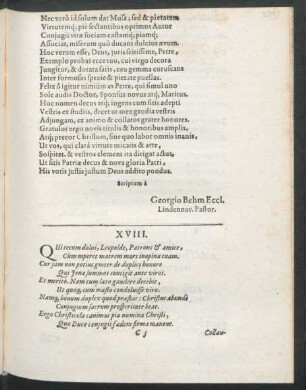 Nec verò id solum dat Musa; sed & pietatem
Virtutemq; pie sectantibus optimus Autor
Conjugii vitæ sociam castamq; piamq;
Associat, miserum quò ducant dulcius ævum.
Hoc verum esse, Deus, juris scitissime, Petre,
Exemplo probat ecce tuo, cui virgo decora
Jungitur, & dotata satis, ceu gemma coruscans
Inter formosas specie & pietate puellas.
Felix ô igitur nimiùm es Petre, qui simul uno
Sole audis Doctor, Sponsus novus atq; Maritus.
Hoc nomen decus atq; ingens cum sitis adepti
Vestris ex studiis, decet ut mea gaudia vestris
Adjungam, ex animo & collatos grater honores.
Gratulor ergo novis titulis & honoribus amplis,
Atq; precor Christum, sine quo labor omnis inanis,
Ut vos, qui clarâ virtute micatis & arte,
Sospitet, & vestros clemens ita dirigat actus,
Ut sitis Patriæ decus & nova gloria Patri,
His votis justis justum Deus addito pondus.
Scriptum à
Georgio Behm Eccl.
Lindennav. Pastor.
XVIII.
QUi tecum dolui, Leopolde, Patrone & amice,
Cùm raperet matrem mors inopina tuam.
Cur jam non potius grater de duplici honore
Qui Jena summos contigit ante viros.
Et meritò. Nam cum læto gaudere decebit,
Ut quoq; cum mæsto condoluisse viro.
Namq; bonum duplex quod præstat: Christus abundè
Conjugium sacrum prosperitate beat.
Ergo Christicolæ canimus pia numina Christi,
Quo Duce conjugii fœdera firma manent.
C 3
Collau-